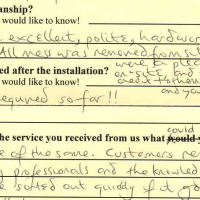 anship?
would like to know!
excellent, polite, hard wor
All mess was removed from sit
were & plea
ed after the installation? on-site and
would like to know! credit to hom
and yo
equired so far!!
could
he service you received from us what would y
e of the same. Customers ne
professionals and the knowled
e sorted out quickly if it go